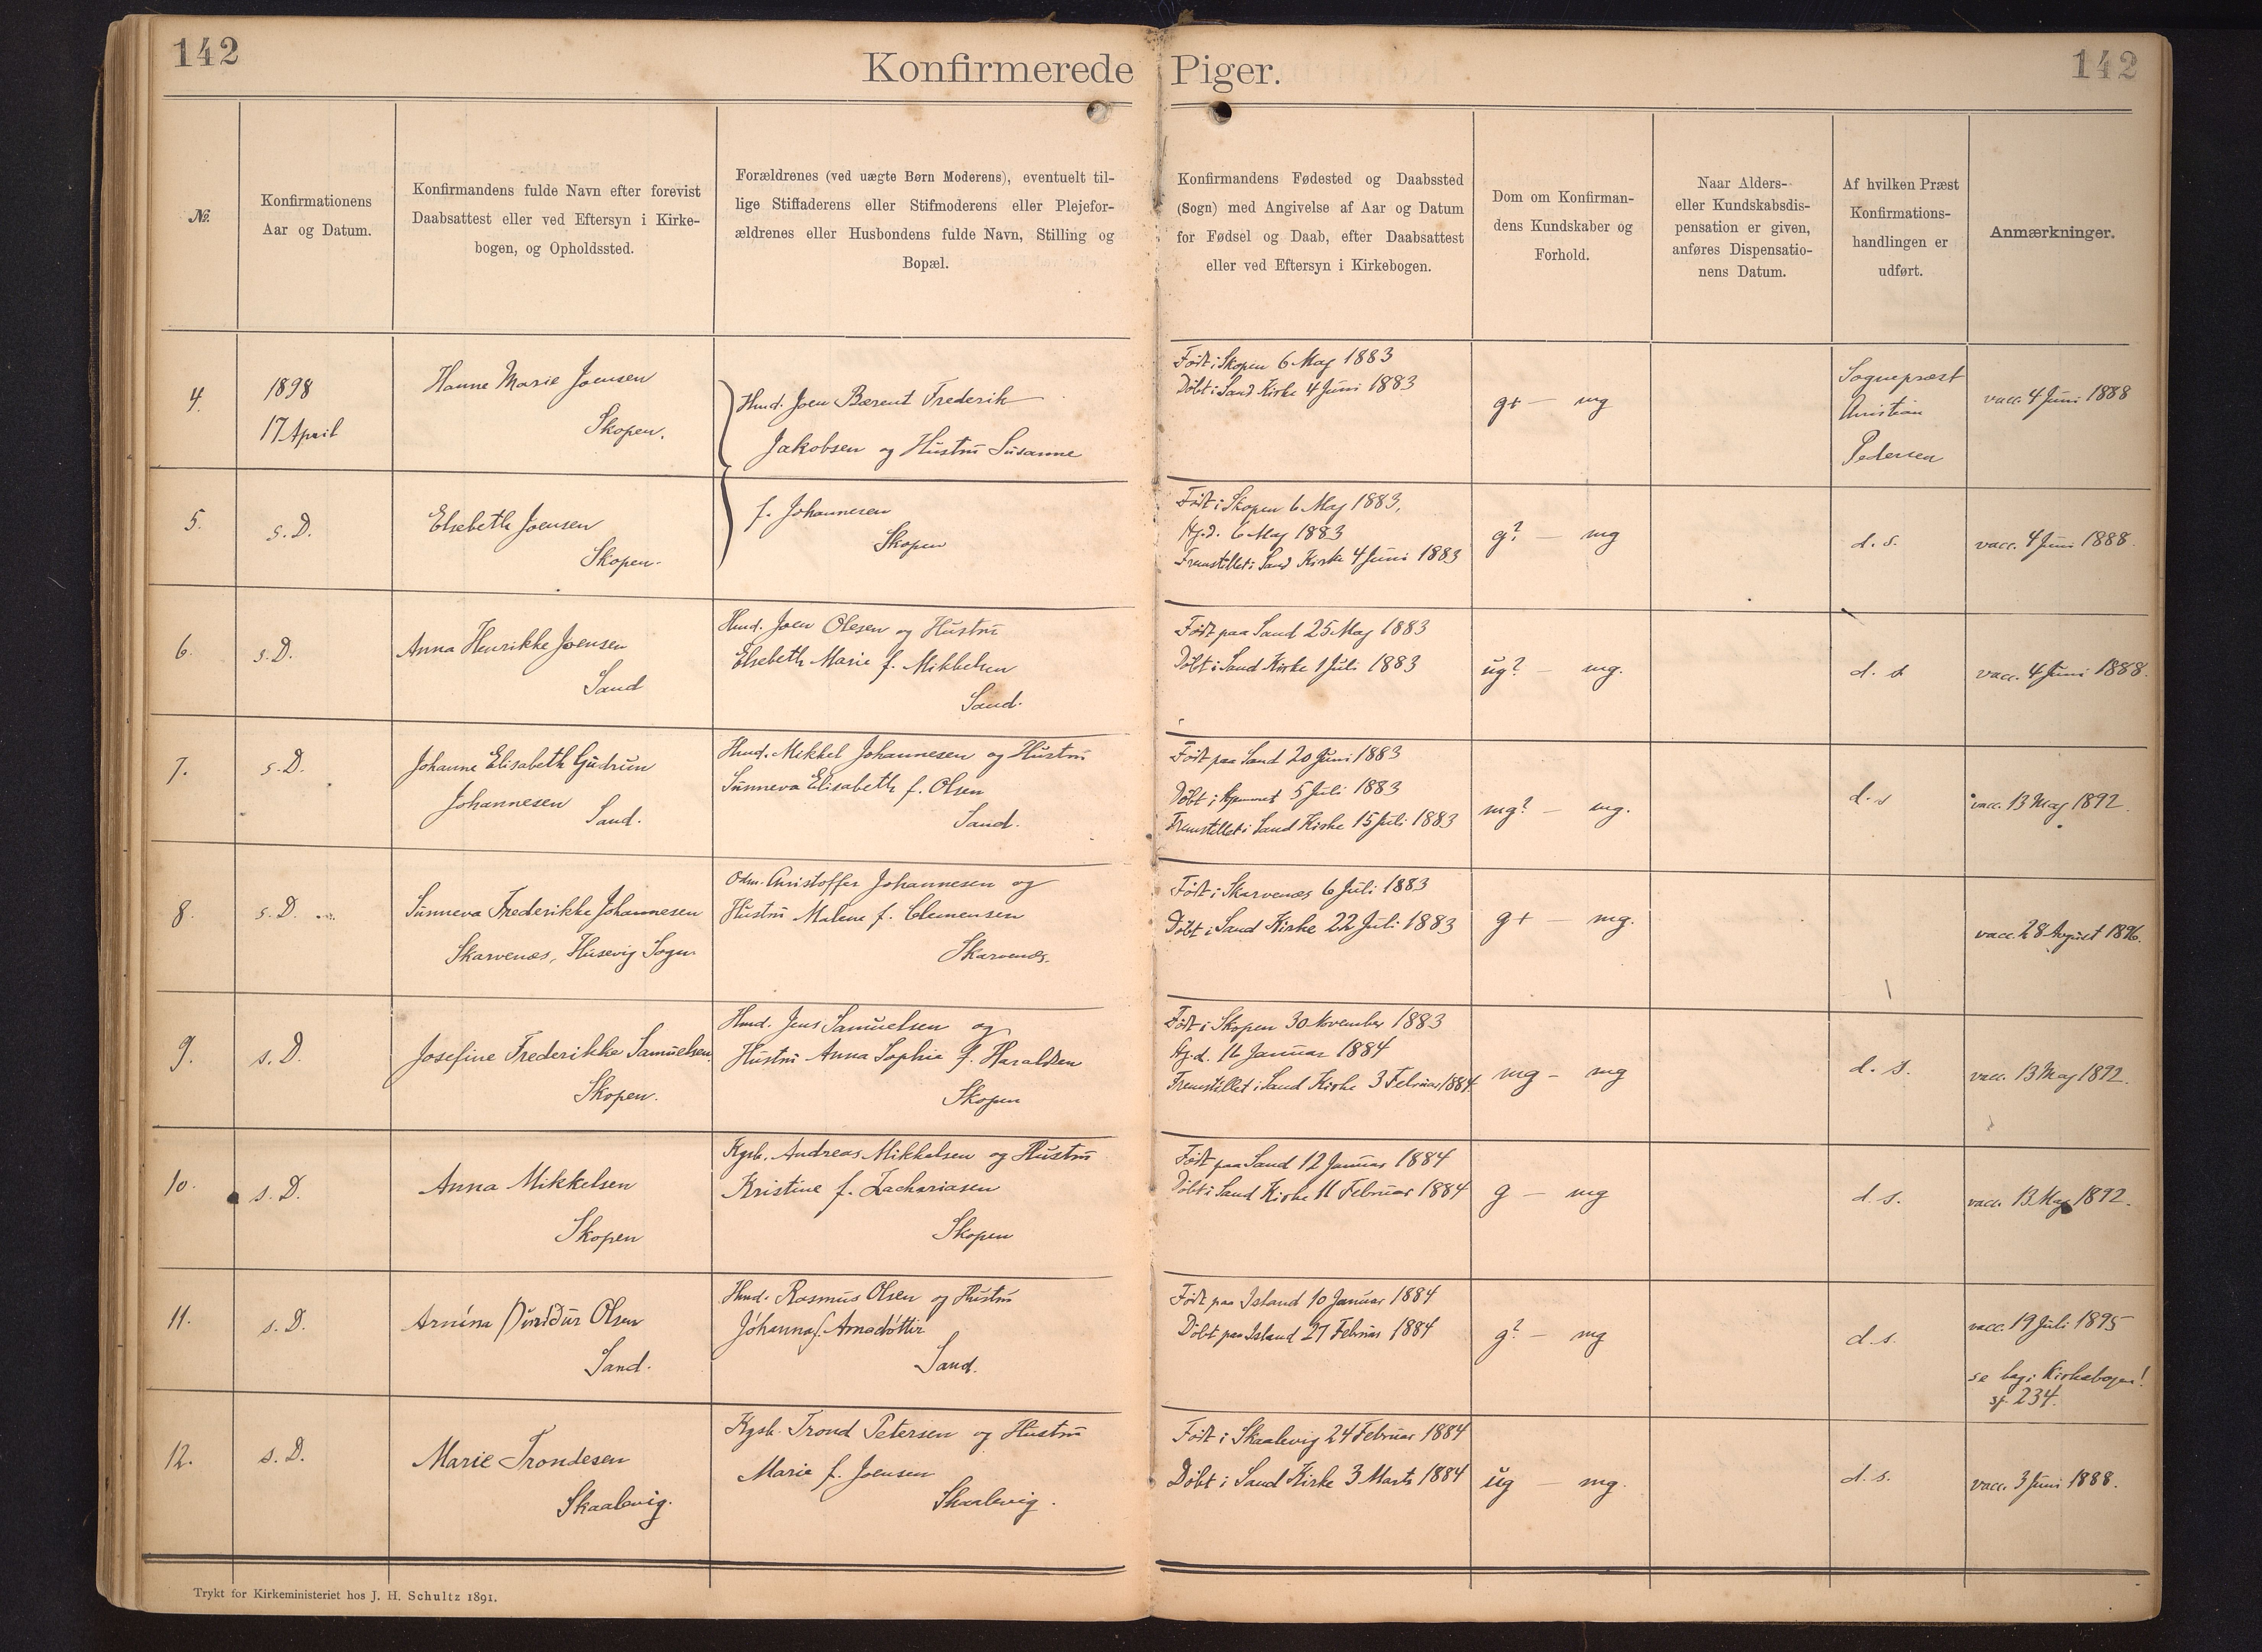 142
Konfirmerede Piger.
142
№.
Konfirmationens
Aar og Datum.
Konfirmandens fulde Navn efter forevist
Daabsattest eller ved Eftersyn i Kirke-
bogen, og Opholdssted.
Forældrenes (ved uægte Børn Moderens), eventuelt til-
lige Stiffaderens eller Stifmoderens eller Plejefor-
ældrenes eller Husbondens fulde Navn, Stilling og
Bopæl.
Konfirmandens Fødested og Daabssted
(Sogn) med Angivelse af Aar og Datum
for Fødsel og Daab, efter Daabsattest
eller ved Eftersyn i Kirkebogen.
Dom om Konfirman-
dens Kundskaber og
Forhold.
Naar Alders-
eller Kundskabsdis-
pensation er given,
anføres Dispensatio-
nens Datum.
Af hvilken Præst
Konfirmations-
handlingen er
udført.
Anmærkninger.
4.
1898
17 April
Hanne Marie Joensen
Skopen.
Hmd. Joen Bærent Frederik
Jakobsen og Hustru Susanne
Født i Skopen 6 Maj 1883
Døbt i Sand Kirke 4 Juni 1883
g+ — mg
Sognepræst
Christian
Pedersen
vacc. 4 Juni 1888
5.
s. D.
Elsebeth Joensen
Skopen.
f. Johannesen
Skopen
Født i Skopen 6 Maj 1883,
Hj.d. 6 Maj 1883
Fremstillet i Sand Kirke 4 Juni 1883
g? — mg
d. s.
vacc. 4 Juni 1888.
6.
s. D.
Anna Henrikke Joensen
Sand
Hmd. Joen Olesen og Hustru
Elsebeth Marie f. Mikkelsen
Sand.
Født paa Sand 25 Maj 1883
Døbt i Sand Kirke 1 Juli 1883
ug? — mg.
d. s
vacc. 4 Juni 1888.
7.
s. D.
Johanne Elisabeth Gudrun
Johannesen
Sand.
Hmd. Mikkel Johannesen og Hustru
Sunneva Elisabeth f. Olsen
Sand.
Født paa Sand 20 Juni 1883
Døbt i Hjemmet 5 Juli 1883
Fremstillet i Sand Kirke 15 Juli 1883
mg? — mg.
d. s
vacc. 13 Maj 1892.
8.
s. D.
Sunneva Frederikke Johannesen
Skarvenæs, Husevig Sogn.
Odm. Christoffer Johannesen og
Hustru Malene f. Clemensen
Skarvenæs.
Født i Skarvenæs 6 Juli 1883
Døbt i Sand Kirke 22 Juli 1883
g+ — mg.
vacc. 28 August 1896.
9.
s. D.
Josefine Frederikke Samuelsen.
Skopen.
Hmd. Jens Samuelsen og
Hustru Anna Sophie f. Haraldsen
Skopen
Født i Skopen 30 November 1883
Hj.d. 16 Januar 1884
Fremstillet i Sand Kirke 3 Februar 1884.
mg — mg
d. s.
vacc. 13 Maj 1892.
10.
s. D.
Anna Mikkelsen
Skopen
Kgsb. Andreas Mikkelsen og Hustru
Kristine f. Zachariasen
Skopen
Født paa Sand 12 Januar 1884
Døbt i Sand Kirke 11 Februar 1884
g — mg
d. s.
vacc. 13 Maj 1892.
11.
s. D.
Arnína Þuríður Olsen
Sand.
Hmd. Rasmus Olsen og Hustru
Jóhanna f. Arnadóttir
Sand.
Født paa Island 10 Januar 1884
Døbt paa Island 27 Februar 1884
g? — mg
d. s.
vacc. 19 Juli 1895
se bag i Kirkebogen!
234.
12.
s. D.
Marie Trondesen
Skaalevig.
Kgsb. Trond Petersen og Hustru
Marie f. Joensen
Skaalevig.
Født i Skaalevig 24 Februar 1884
Døbt i Sand Kirke 3 Marts 1884
ug — mg.
d. s.
vacc. 3 Juni 1888.
Trykt for Kirkeministeriet hos J. H. Schultz 1891.